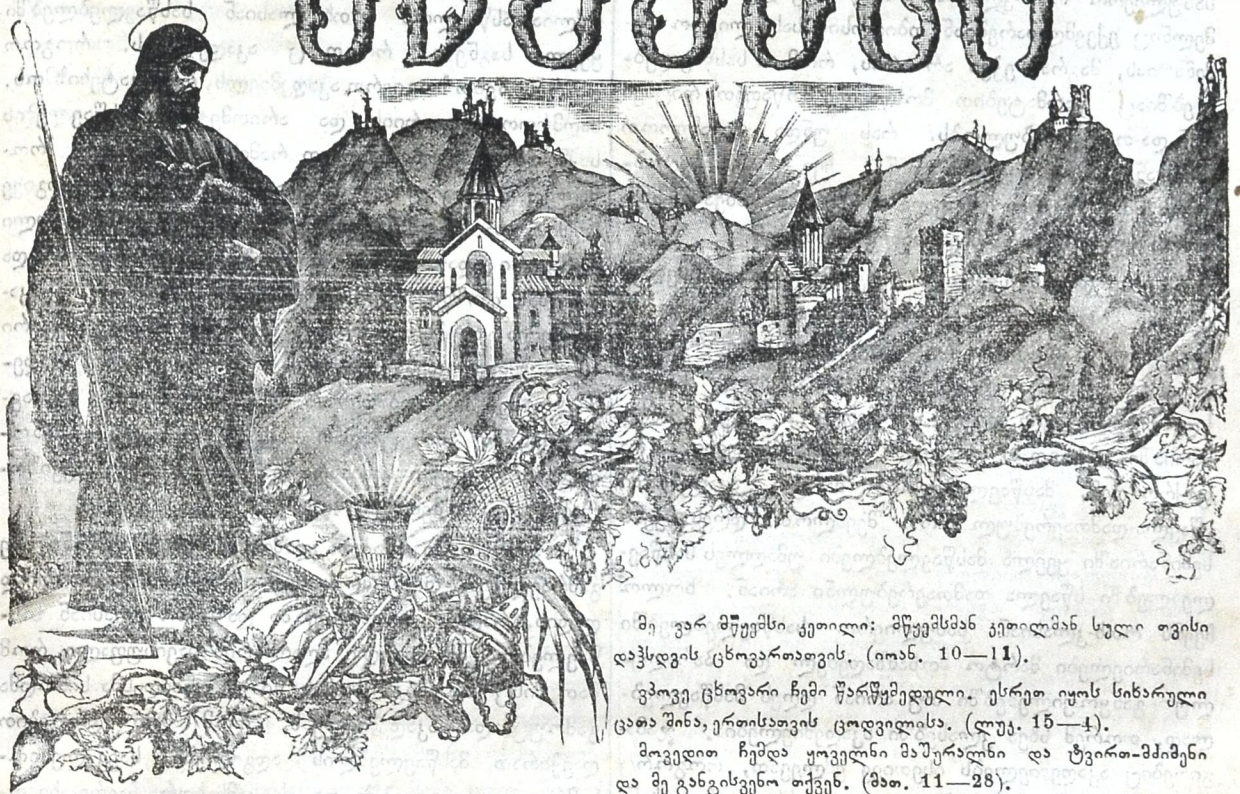 მე ვარ მწყემსი კეთილი: მწყემსმან კეთილმან სული თვისი
დაჰსდვის ცხოვართათვის. (იოან. 10—11).
ვპოვე ცხოვარი ჩემი წარწყმედული. ესრეთ იყოს სიხარული
ცათა შინა, ერთისათვის ცოდვილისა. (ლუკ. 15—4).
მოვედით ჩემდა ყოველნი მაშვრალნი და ტვირთ-მძიმენი
და მე განგისვენო თქვენ. (მათ. 11—28).